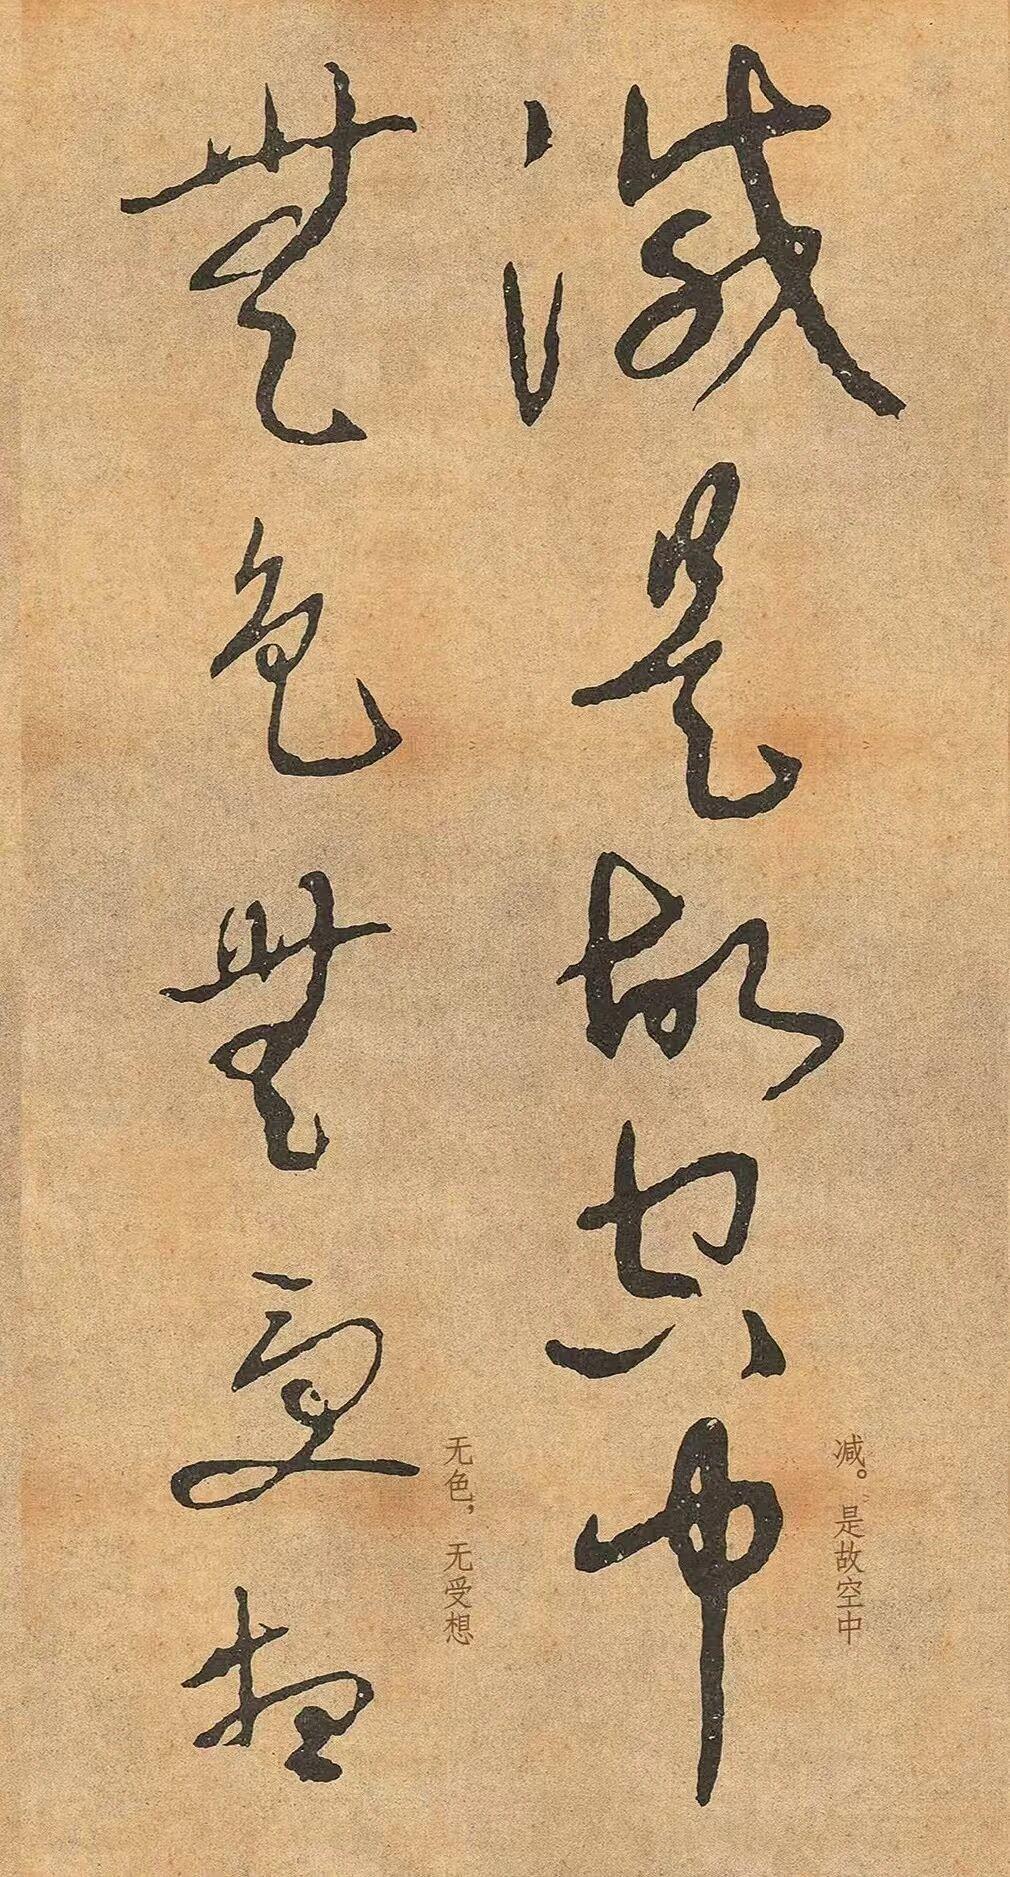 減是故空中
無色無受想
减。是故空中
无色，无受想